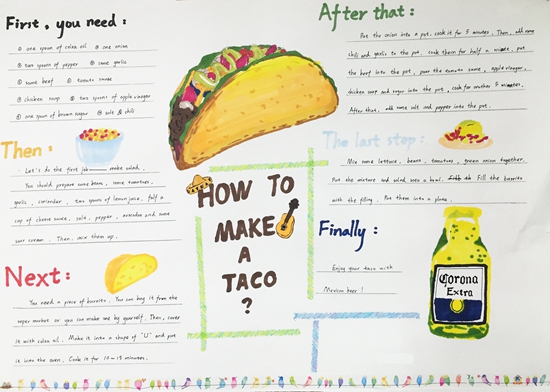 First, you need:
① one spoon of colza oil ② one onion
③ two spoon of pepper ④ some garlic
⑤ some beef ⑥ tomato sauce
⑦ chicken soup ⑧ two spoons of apple vinegar
⑨ one spoon of brown sugar ⑩ salt & chili
Then:
Let's do the first job — make salad.
You should prepare some bean, some tomatoes,
garlic, coriander, two spoons of lemon juice, half a
cup of cheese sauce, salt, pepper, avocados and some
sour cream. Then, mix them up.
Next:
You need a piece of burrito. You can buy it from the
super market or you can make one by yourself. Then, cover
it with colza oil. Make it into a shape of "U" and put
it into the oven. Cook it for 10-15 minutes.
HOW TO
MAKE
A
TACO
?
After that:
Put the onion into a pot, cook it for 5 minutes. Then, add some
chili and garlic to the pot, cook them for half a minute, put
the beef into the pot, pour the tomato sauce, apple vinegar,
chicken soup and sugar into the pot, cook for another 5 minutes.
After that, add some salt and pepper into the pot.
The last step:
Mix some lettuce, beans, tomatoes, green onion together.
Put the mixture and salad into a bowl. Fill the burrito
with the filling. Put them into a plate.
Finally:
Enjoy your taco with
Mexican beer!
Corona
Extra